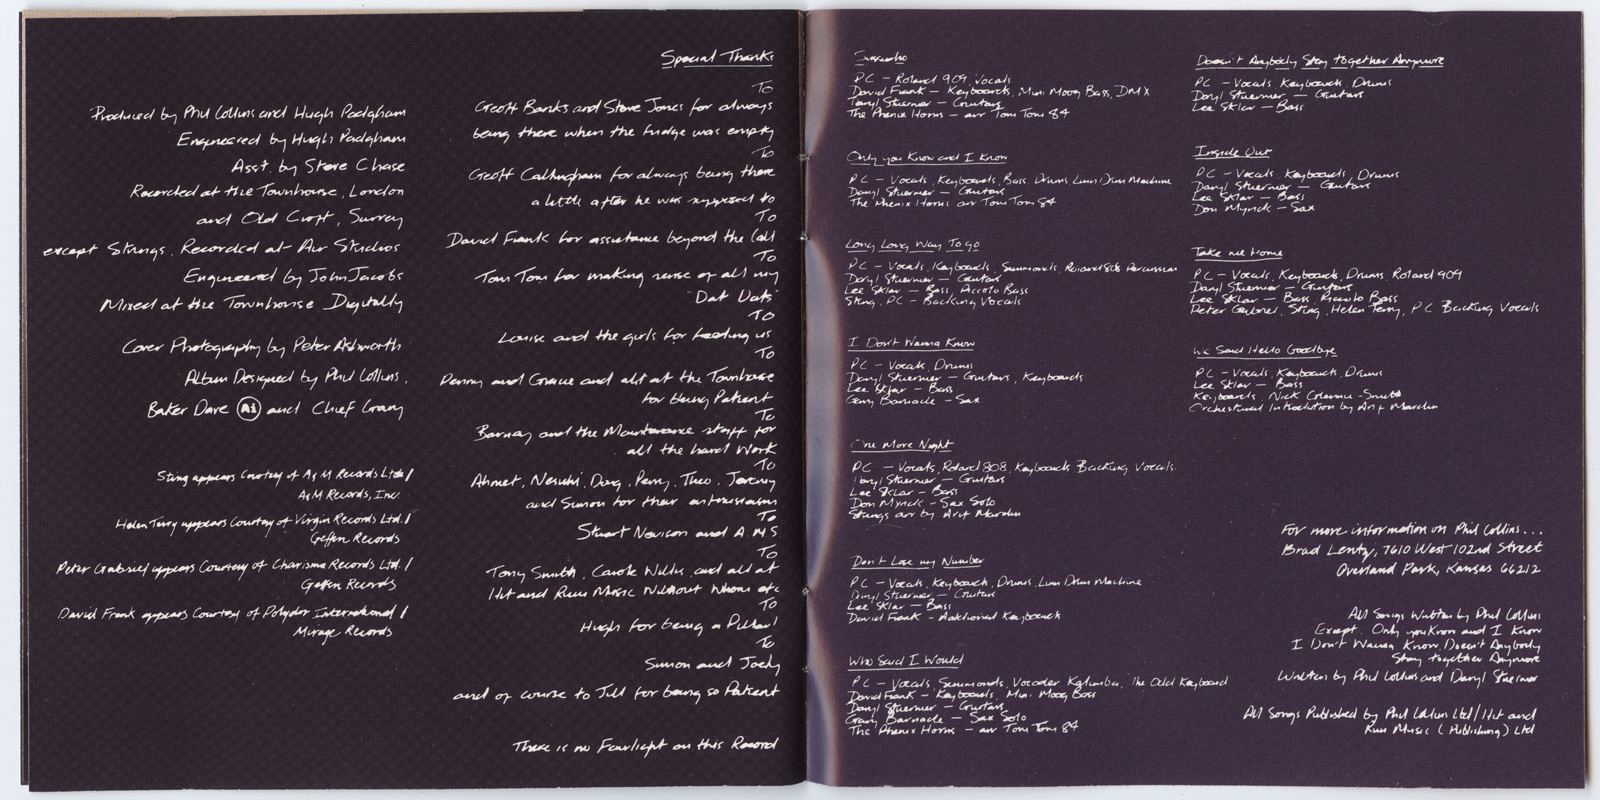 Produced by Phil Collins and Hugh Padgham
Engineered by Hugh Padgham
Asst. by Steve Chase
Recorded at the Townhouse, London
and Old Croft, Surrey
except Strings, Recorded at Air Studios
Engineered by John Jacobs
Mixed at the Townhouse Digitally
Cover Photography by Peter Ashworth
Album Designed by Phil Collins,
Baker Dave A1 and Chief Gray
Sting appears Courtesy of A&M Records Ltd/
A&M Records, Inc.
Helen Terry appears Courtesy of Virgin Records Ltd./
Geffen Records
Peter Gabriel appears Courtesy of Charisma Records Ltd./
Geffen Records
David Frank appears Courtesy of Polydor International/
Mirage Records
Special Thanks
TO
Geoff Banks and Steve Jones for always
being there when the fridge was empty
To
Geoff Callingham for always being there
a little after he was supposed to
To
David Frank for assistance beyond the Call
To
Tom Tom for making sense of all my
"Dat Dats"
TO
Louise and the girls for feeding us
To
Penny and Gracie and all at the Townhouse
for being Patient
To
Barney and the Maintenance staff for
all the hard work
To
Ahmet, Nesuhi, Doug, Perry, Theo, Jeremy
and Simon for their enthusiasm
To
Stuart Nevison and A.M.S
TO
Tony Smith, Carole Willis, and all at
Hit and Run Music Without Whom etc
TO
Hugh for being a Pillar!
To
Simon and Joely
and of course to Jill for being so Patient
There is no Fairlight on this Record
Sussudio
PC - Roland 909, Vocals
David Frank - Keyboards, Mini Moog Bass, DMX
Daryl Stuermer - Guitars
The Phenix Horns - arr Tom Tom 84
Only you Know and I Know
PC - Vocals, Keyboards, Bass, Drums, Linn Drum Machine
Daryl Stuermer - Guitars
The Phenix Horns arr Tom Tom 84
Long Long Way To go
PC - Vocals, Keyboards, Simmonds, Roland 808 Percussion
Daryl Stuermer - Guitars
Lee Sklar - Bass, Piccolo Bass
Sting, PC - Backing Vocals
I Don't Wanna Know
PC - Vocals, Drums
Daryl Stuermer - Guitars, Keyboards
Lee Sklar - Bass
Gary Barnacle - Sax
One More Night
PC - Vocals, Roland 808, Keyboards Backing Vocals
Daryl Stuermer - Guitars
Lee Sklar - Bass
Don Myrick - Sax Solo
Strings arr by Arif Mardin
Don't Lose my Number
PC - Vocals, Keyboards, Drums, Linn Drum Machine
Daryl Stuermer - Guitars
Lee Sklar - Bass
David Frank - Additional Keyboards
Who Said I Would
PC - Vocals, Simmonds, Vocoder, Kalimba, The Odd Keyboard
David Frank - Keyboards, Mini Moog Bass
Daryl Stuermer - Guitars
Gary Barnacle - Sax Solo
The Phenix Horns - arr Tom Tom 84
Doesn't Anybody Stay together Anymore
PC - Vocals, Keyboards, Drums
Daryl Stuermer - Guitars
Lee Sklar - Bass
Inside Out
PC - Vocals, Keyboards, Drums
Daryl Stuermer - Guitars
Lee Sklar - Bass
Don Myrick - Sax
Take me Home
PC - Vocals, Keyboards, Drums, Roland 909
Daryl Stuermer - Guitars
Lee Sklar - Bass, Piccolo Bass
Peter Gabriel, Sting, Helen Terry, PC Backing Vocals
We Said Hello Goodbye
PC - Vocals, Keyboards, Drums
Lee Sklar - Bass
Keyboards, Nick Glennie-Smith
Orchestral Introdution by Arif Mardin
For more information on Phil Collins...
Brad Lentz, 7610 West 102nd Street
Overland Park, Kansas 66212
All Songs Written by Phil Collins
Except, Only you Know and I Know
I Don't Wanna Know, Doesn't Anybody
Stay together Anymore
Written by Phil Collins and Daryl Stuermer
All Songs Published by Phil Collins Ltd/Hit and
Run Music (Publishing) Ltd